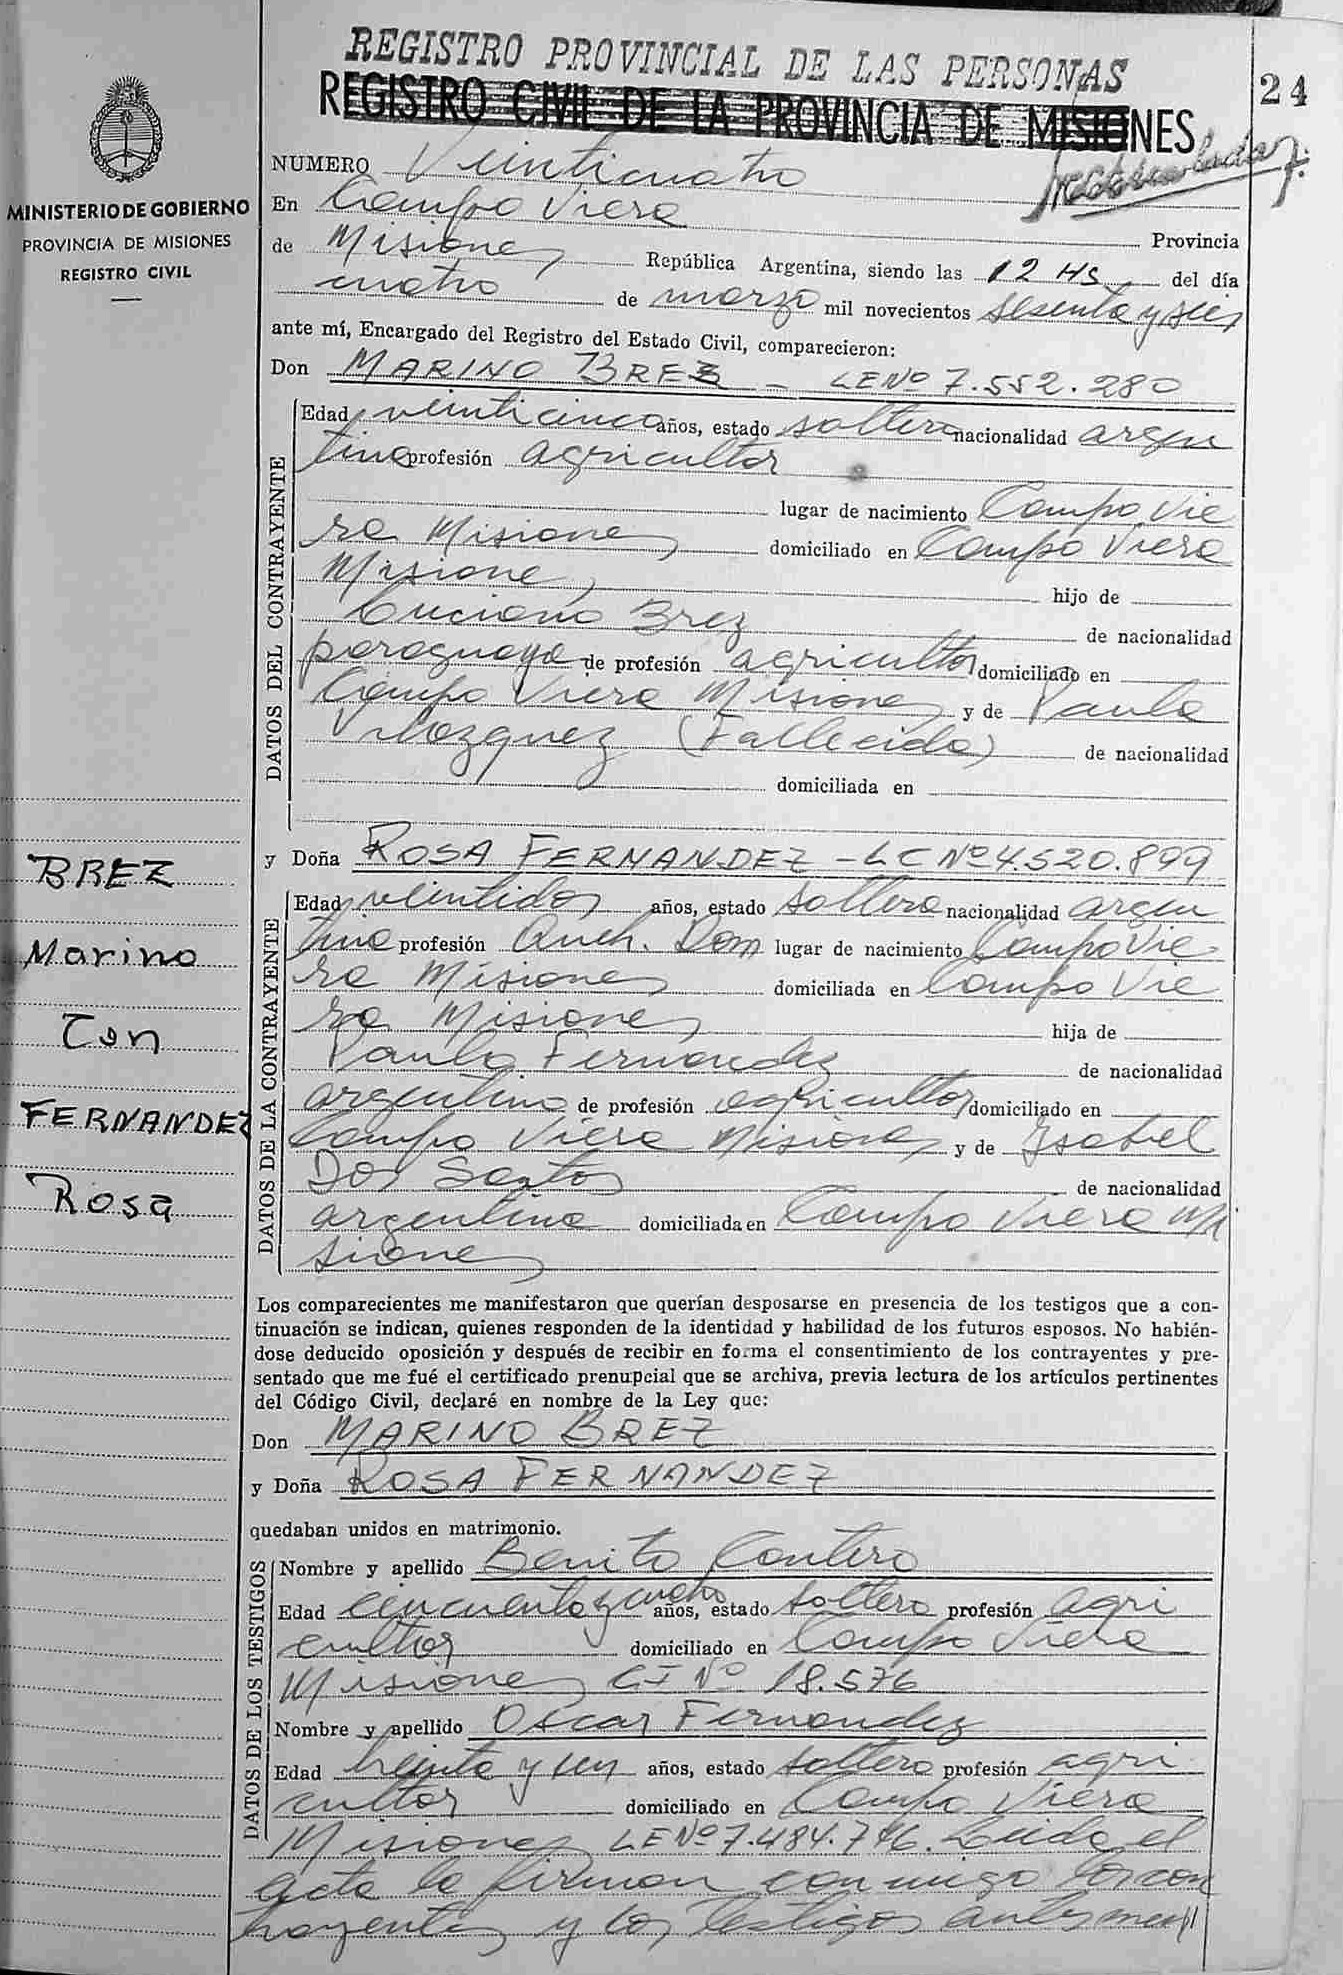 REGISTRO PROVINCIAL DE LAS PERSONAS
REGISTRO CIVIL DE LA PROVINCIA DE MISIONES
24
NUMERO Veinticuatro
MINISTERIO DE GOBIERNO
PROVINCIA DE MISIONES
REGISTRO CIVIL
En Campo Viera Provincia
de Misiones República Argentina, siendo las 12 HS del día
cuatro de marzo mil novecientos sesenta y seis
ante mí, Encargado del Registro del Estado Civil, comparecieron:
Don MARINO BREZ - LE Nº 7.552.280
DATOS DEL CONTRAYENTE
Edad veinticinco años, estado soltero nacionalidad argen
tino profesión agricultor
lugar de nacimiento Campo Vie
ra Misiones domiciliado en Campo Viera
Misiones hijo de
Luciano Brez de nacionalidad
paraguaya de profesión agricultor domiciliado en
Campo Viera Misiones y de Paula
Vilazquez (Fallecida) de nacionalidad
domiciliada en
y Doña ROSA FERNANDEZ - LC Nº 4.520.899
BREZ
Marino
Con
FERNANDEZ
Rosa
DATOS DE LA CONTRAYENTE
Edad veintidos años, estado soltera nacionalidad argen
tina profesión Queh. Dom lugar de nacimiento Campo Vie
ra Misiones domiciliada en Campo Vie
ra Misiones hija de
Paulo Fernandez de nacionalidad
argentino de profesión agricultor domiciliado en
Campo Viera Misiones y de Ysabel
Dos Santos de nacionalidad
argentina domiciliada en Campo Viera Mi
siones
Los comparecientes me manifestaron que querían desposarse en presencia de los testigos que a con-
tinuación se indican, quienes responden de la identidad y habilidad de los futuros esposos. No habién-
dose deducido oposición y después de recibir en forma el consentimiento de los contrayentes y pre-
sentado que me fué el certificado prenupcial que se archiva, previa lectura de los artículos pertinentes
del Código Civil, declaré en nombre de la Ley que:
Don MARINO BREZ
y Doña ROSA FERNANDEZ
quedaban unidos en matrimonio.
DATOS DE LOS TESTIGOS
Nombre y apellido Benito Contero
Edad cincuenta y cuatro años, estado soltero profesión agri
cultor domiciliado en Campo Viera
Misiones CI Nº 18.576
Nombre y apellido Oscar Fernandez
Edad treinta y un años, estado soltero profesión agri
cultor domiciliado en Campo Viera
Misiones LE Nº 7.484.746. Leida el
acta la firman conmigo los con
trayentes y los testigos antes men